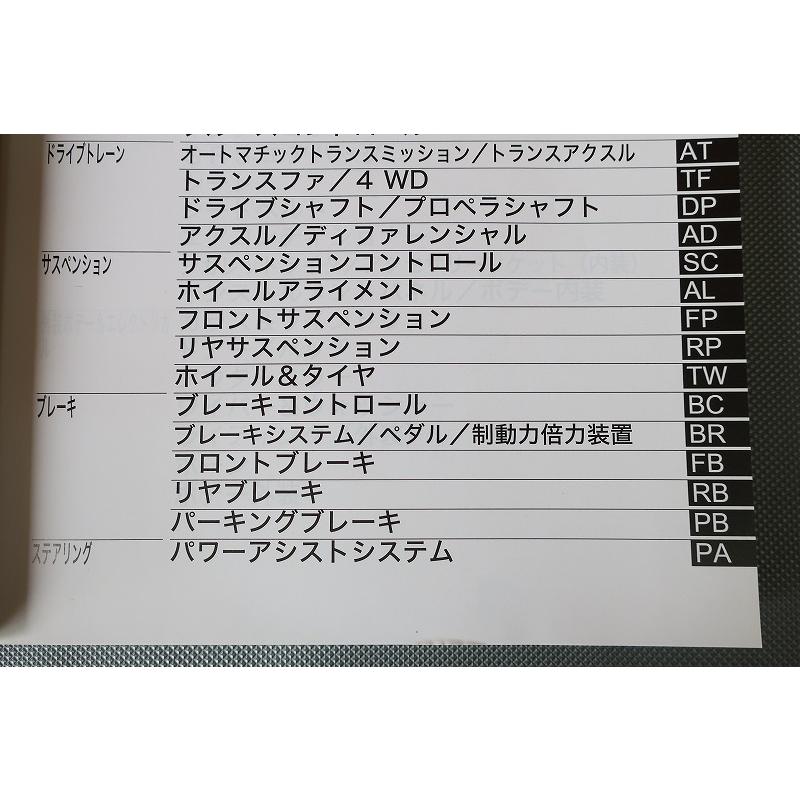 ドライブトレーン オートマチックトランスミッション／トランスアクスル AT
トランスファ／4 WD TF
ドライブシャフト／プロペラシャフト DP
アクスル／ディファレンシャル AD
サスペンション サスペンションコントロール SC
ホイールアライメント AL
フロントサスペンション FP
リヤサスペンション RP
ホイール＆タイヤ TW
ブレーキ ブレーキコントロール BC
ブレーキシステム／ペダル／制動力倍力装置 BR
フロントブレーキ FB
リヤブレーキ RB
パーキングブレーキ PB
ステアリング パワーアシストシステム PA